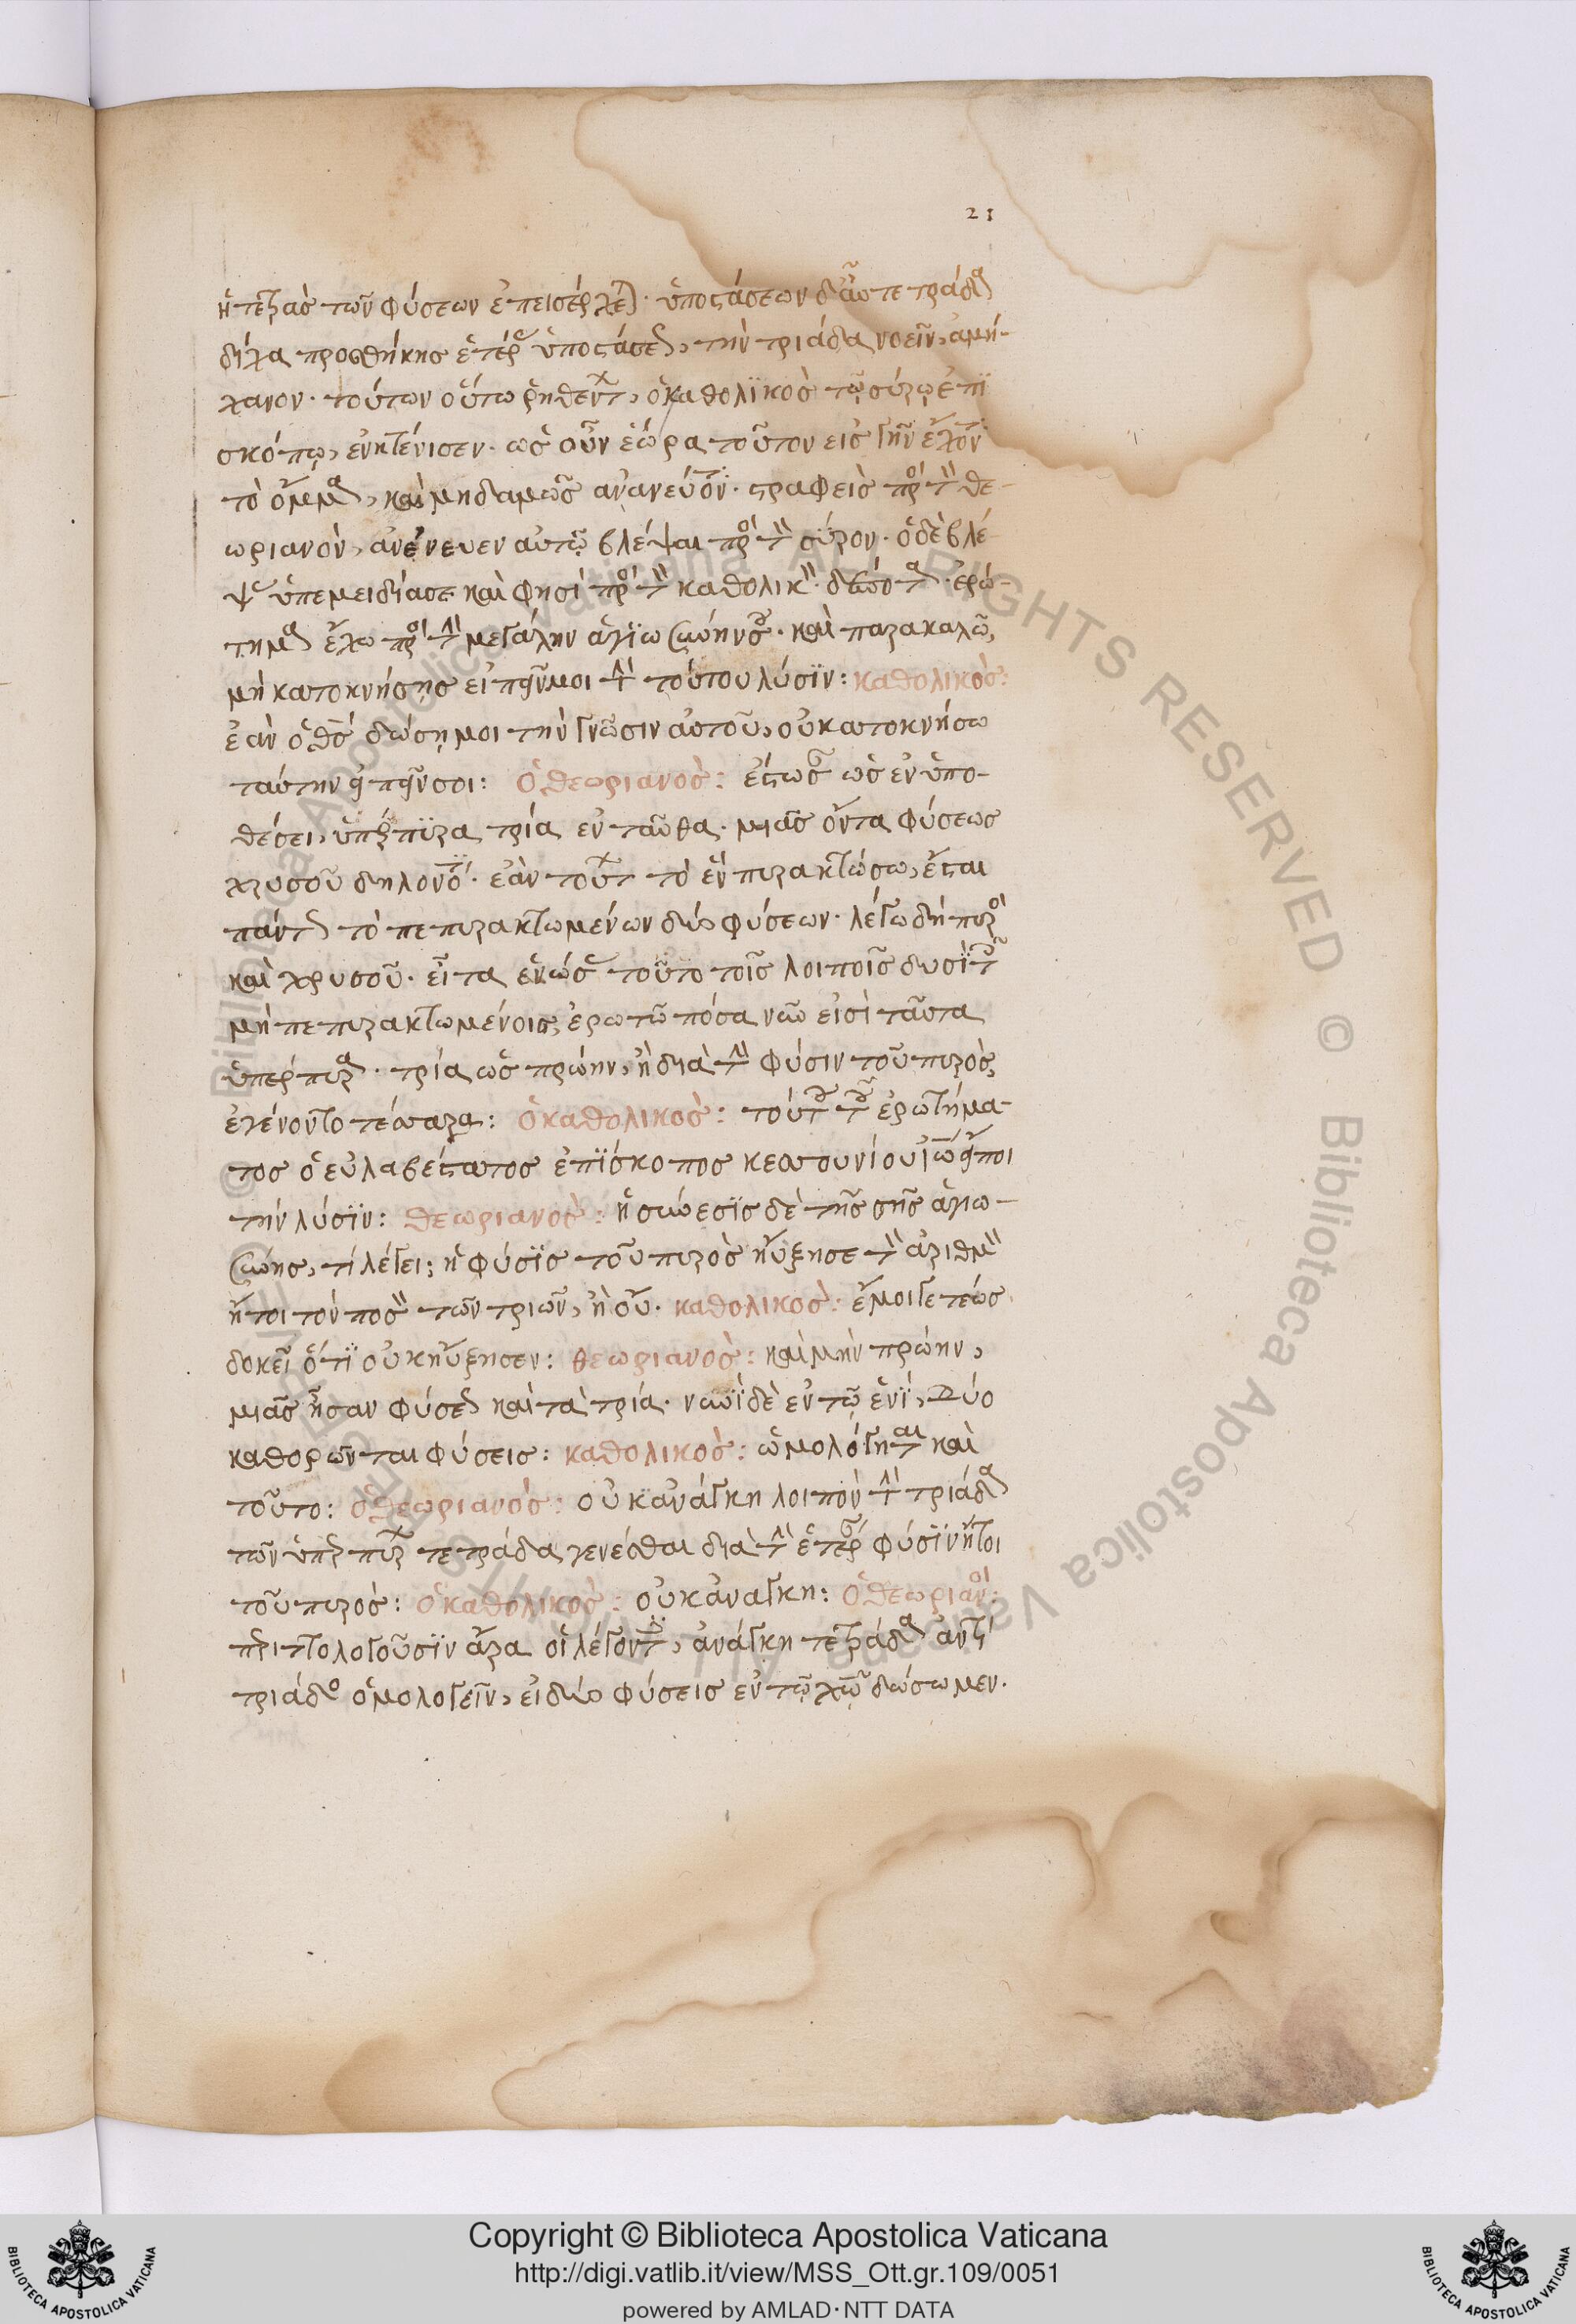 21
ἡ τετρὰς τῶν φύσεων ἐπεισέρχεται· ὑποστάσεων δ' αὖ τετράδα
δίχα προσθήκης ἑτέρας ὑποστάσεως, τὴν τριάδα νοεῖν, ἀμή-
χανον. τούτων οὕτω ῥηθέντων, ὁ καθολικὸς τῷ σύρῳ ἐπι
σκόπῳ, ἐνητένισεν. ὡς οὖν ἑώρα τοῦτον εἰς γῆν ἔχοντα
τὸ ὄμμα, καὶ μηδαμῶς ἀνανεύοντα. στραφεὶς πρὸς τὸν θε-
ωριανὸν, ἀνένευεν αὐτῷ βλέψαι πρὸς τὸν σύρον. ὁ δὲ βλέ-
ψας ὑπεμειδίασε καὶ φησὶ πρὸς τὸν καθολικόν. δέσποτα. ἐρώ-
τημα ἔχω πρὸς τὴν μεγάλην ἁγιωσύνην σου. καὶ παρακαλῶ,
μὴ κατοκνήσῃς εἰπεῖν μοι τὴν τούτου λύσιν: καθολικὸς:
ἐὰν ὁ θς δώσῃ μοι τὴν γνῶσιν αὐτοῦ, οὐ κατοκνήσω
ταύτην εἰπεῖν σοι: ὁ θεωριανὸς: ἔστωσαν ὡς ἐν ὑπο-
θέσει, ὑπέρπυρα τρία ἐνταῦθα. μιᾶς ὄντα φύσεως
χρυσοῦ δηλονότι. ἐὰν τούτων τὸ ἓν πυρακτώσω, ἔσται
πάντως τὸ πεπυρακτωμένων δύο φύσεων. λέγω δὴ πυρὸς
καὶ χρυσοῦ. εἶτα ἑνώσας τοῦτο τοῖς λοιποῖς δυσὶ τοῖς
μὴ πεπυρακτωμένοις, ἐρωτῶ πόσα νῦν εἰσὶ ταῦτα
ὑπέρπυρα. τρία ὡς πρώην, ἢ διὰ τὴν φύσιν τοῦ πυρὸς,
ἐγένοντο τέσσαρα: ὁ καθολικὸς: τούτου τοῦ ἐρωτήμα-
τος ὁ εὐλαβέστατος ἐπίσκοπος κεσσουνίου ἰω εἴποι
τὴν λύσιν: θεωριανὸς: ἡ σύνεσις δὲ τῆς σῆς ἁγιω-
σύνης, τί λέγει; ἡ φύσις τοῦ πυρὸς ηὔξησε τὸν ἀριθμὸν
ἤτοι τὸν ποσὸν τῶν τριῶν, ἢ οὔ. καθολικὸς: ἔμοιγε τέως
δοκεῖ ὅτι οὐκ ηὔξησεν: θεωριανὸς: καὶ μὴν πρώην,
μιᾶς ἦσαν φύσεως καὶ τὰ τρία. νυνὶ δὲ ἐν τῷ ἑνὶ, δύο
καθορῶνται φύσεις: καθολικὸς: ὡμολόγηται καὶ
τοῦτο: ὁ θεωριανὸς: οὐκ ἀνάγκη λοιπὸν τὴν τριάδα
τῶν ὑπερπύρων τετράδα γενέσθαι διὰ τὴν ἑτέραν φύσιν ἤτοι
τοῦ πυρός: ὁ καθολικὸς: οὐκ ἀνάγκη: ὁ θεωριανὸς:
περιττολογοῦσιν ἄρα οἱ λέγοντες, ἀνάγκη τετράδα ἀντὶ
τριάδος ὁμολογεῖν, εἰ δύο φύσεις ἐν τῷ χῷ δώσωμεν.
Copyright © Biblioteca Apostolica Vaticana
http://digi.vatlib.it/view/MSS_Ott.gr.109/0051
powered by AMLAD·NTT DATA